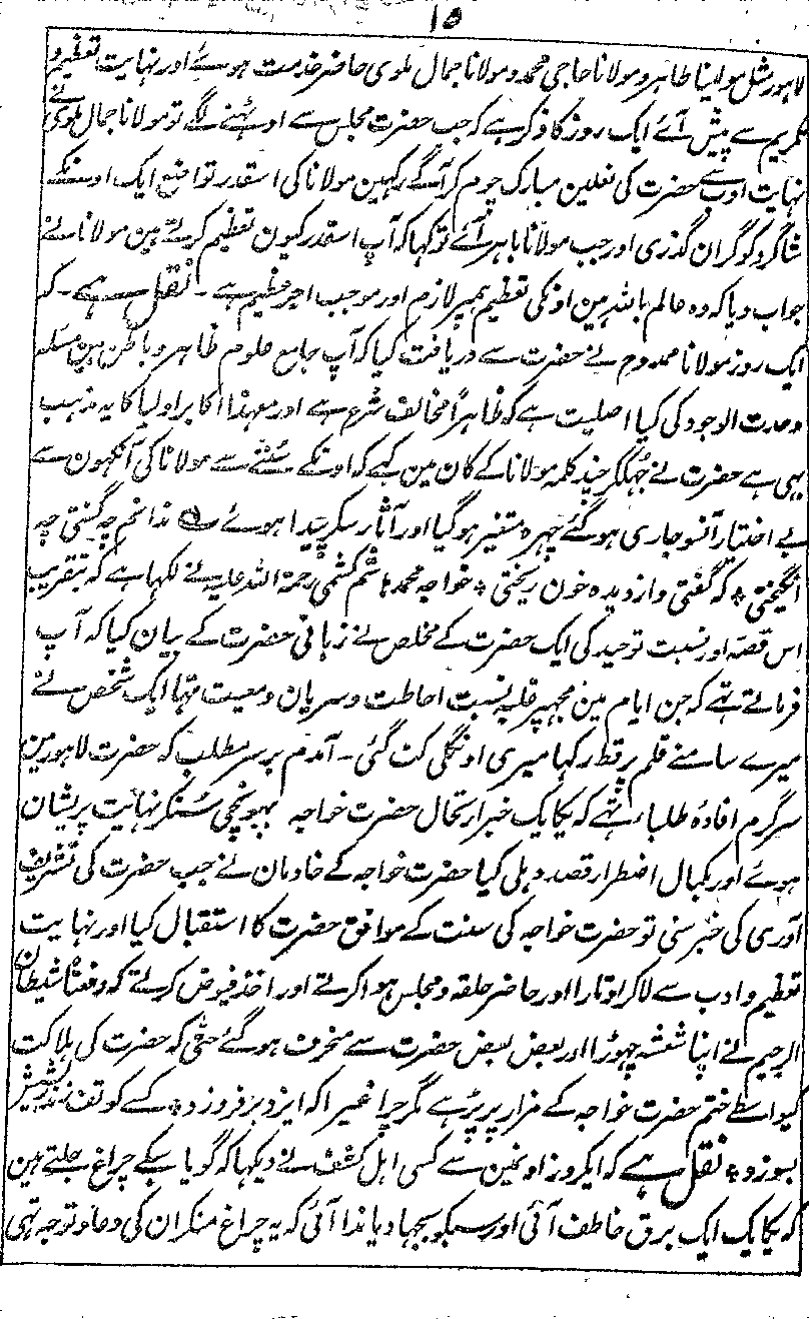 ۱۵
لاہور مثل مولینا طاہر و مولانا حاجی محمد و مولانا جمال تلوی حاضر خدمت ہوئے اور نہایت تعظیم و
تکریم سے پیش آئے ایک روز کا ذکر ہے کہ جب حضرت مجلس سے اوٹہنے لگے تو مولانا جمال تلوی نے
نہایت ادب سے حضرت کی نعلین مبارک چوم کر آگے رکہین مولانا کی اسقدر تواضع ایک اونکے
شاگرد کو گران گذری اور جب مولانا باہر آئے تو کہا کہ آپ اسقدر کیون تعظیم کرتے ہین مولانا نے
جواب دیا کہ وہ عالم باللہ ہین اونکی تعظیم ہمپر لازم اور موجب اجر عظیم ہے ۔ نقل ہے ۔ کہ
ایک روز مولانا ممدوح نے حضرت سے دریافت کیا کہ آپ جامع علوم ظاہر و باطن ہین مسئلہ
وحدت الوجود کی کیا اصلیت ہے کہ ظاہراً مخالف شرع ہے اور معہذا اکابر اولیا کا یہ مذہب
یہی ہے حضرت نے جُہککر چند کلمہ مولانا کے کان مین کہے کہ اونکے سُننے سے مولانا کی آنکہون سے
بے اختیار آنسو جاری ہو گئے چہرہ متغیر ہوگیا اور آثار سکر پیدا ہوئے ؎ ندانم چہ گفتی چہ
انگیختی ٭ کہ گفتی و از دیدہ خون ریختی ٭ خواجہ محمد ہاشم کشمی رحمۃ اللہ علیہ نے لکہا ہے کہ بتقریب
اس قصہ اور نسبت توحید کی ایک حضرت کے مخلص نے زبانی حضرت کے بیان کیا کہ آپ
فرماتے تہے کہ جن ایام مین مجہپر غلبہ نسبت احاطت و سریان و معیت تہا ایک شخص نے
میرے سامنے قلم پر قط رکہا میری اونگلی کٹ گئی ۔ آمدم برسر مطلب کہ حضرت لاہور مین
سرگرم افادہ طلبا تہے کہ یکایک خبر ارتحال حضرت خواجہ پہونچی سُنکر نہایت پریشان
ہوئے اور بکمال اضطرار قصد دہلی کیا حضرت خواجہ کے خادمان نے جب حضرت کی تشریف
آوری کی خبر سنی تو حضرت خواجہ کی سنت کے موافق حضرت کا استقبال کیا اور نہایت
تعظیم و ادب سے لاکر اوتارا اور حاضر حلقہ و مجلس ہوا کرتے اور اخذ فیوض کرتے کہ دفعتاً شیطان
الرجیم نے اپنا شعشہ چہوڑا اور بعض بعض حضرت سے منحرف ہو گئے حتیٰ کہ حضرت کی ہلاکت
کیواسطے ختم حضرت خواجہ کے مزار پر پڑہے مگر چراغیرا کہ ایزد برفروزد ٭ کسے کو تف زند ریشش
بسوزد ٭ نقل ہے کہ ایکروز اونہین سے کسی اہل کشف نے دیکہا کہ گویا سبکے چراغ جلتے ہین
کہ یکایک ایک برق خاطف آئی اور سبکو بجہا دیا ندا آئی کہ یہ چراغ منکران کی دعا و توجہ تہی